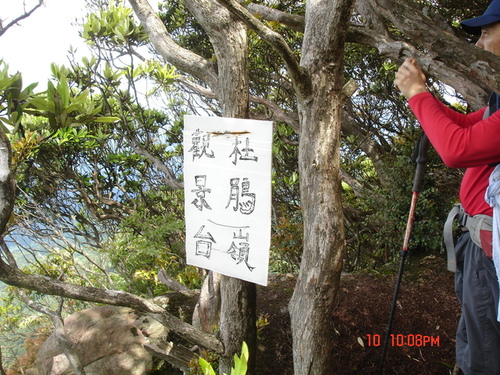 杜鵑嶺
觀景台
10 10:08PM